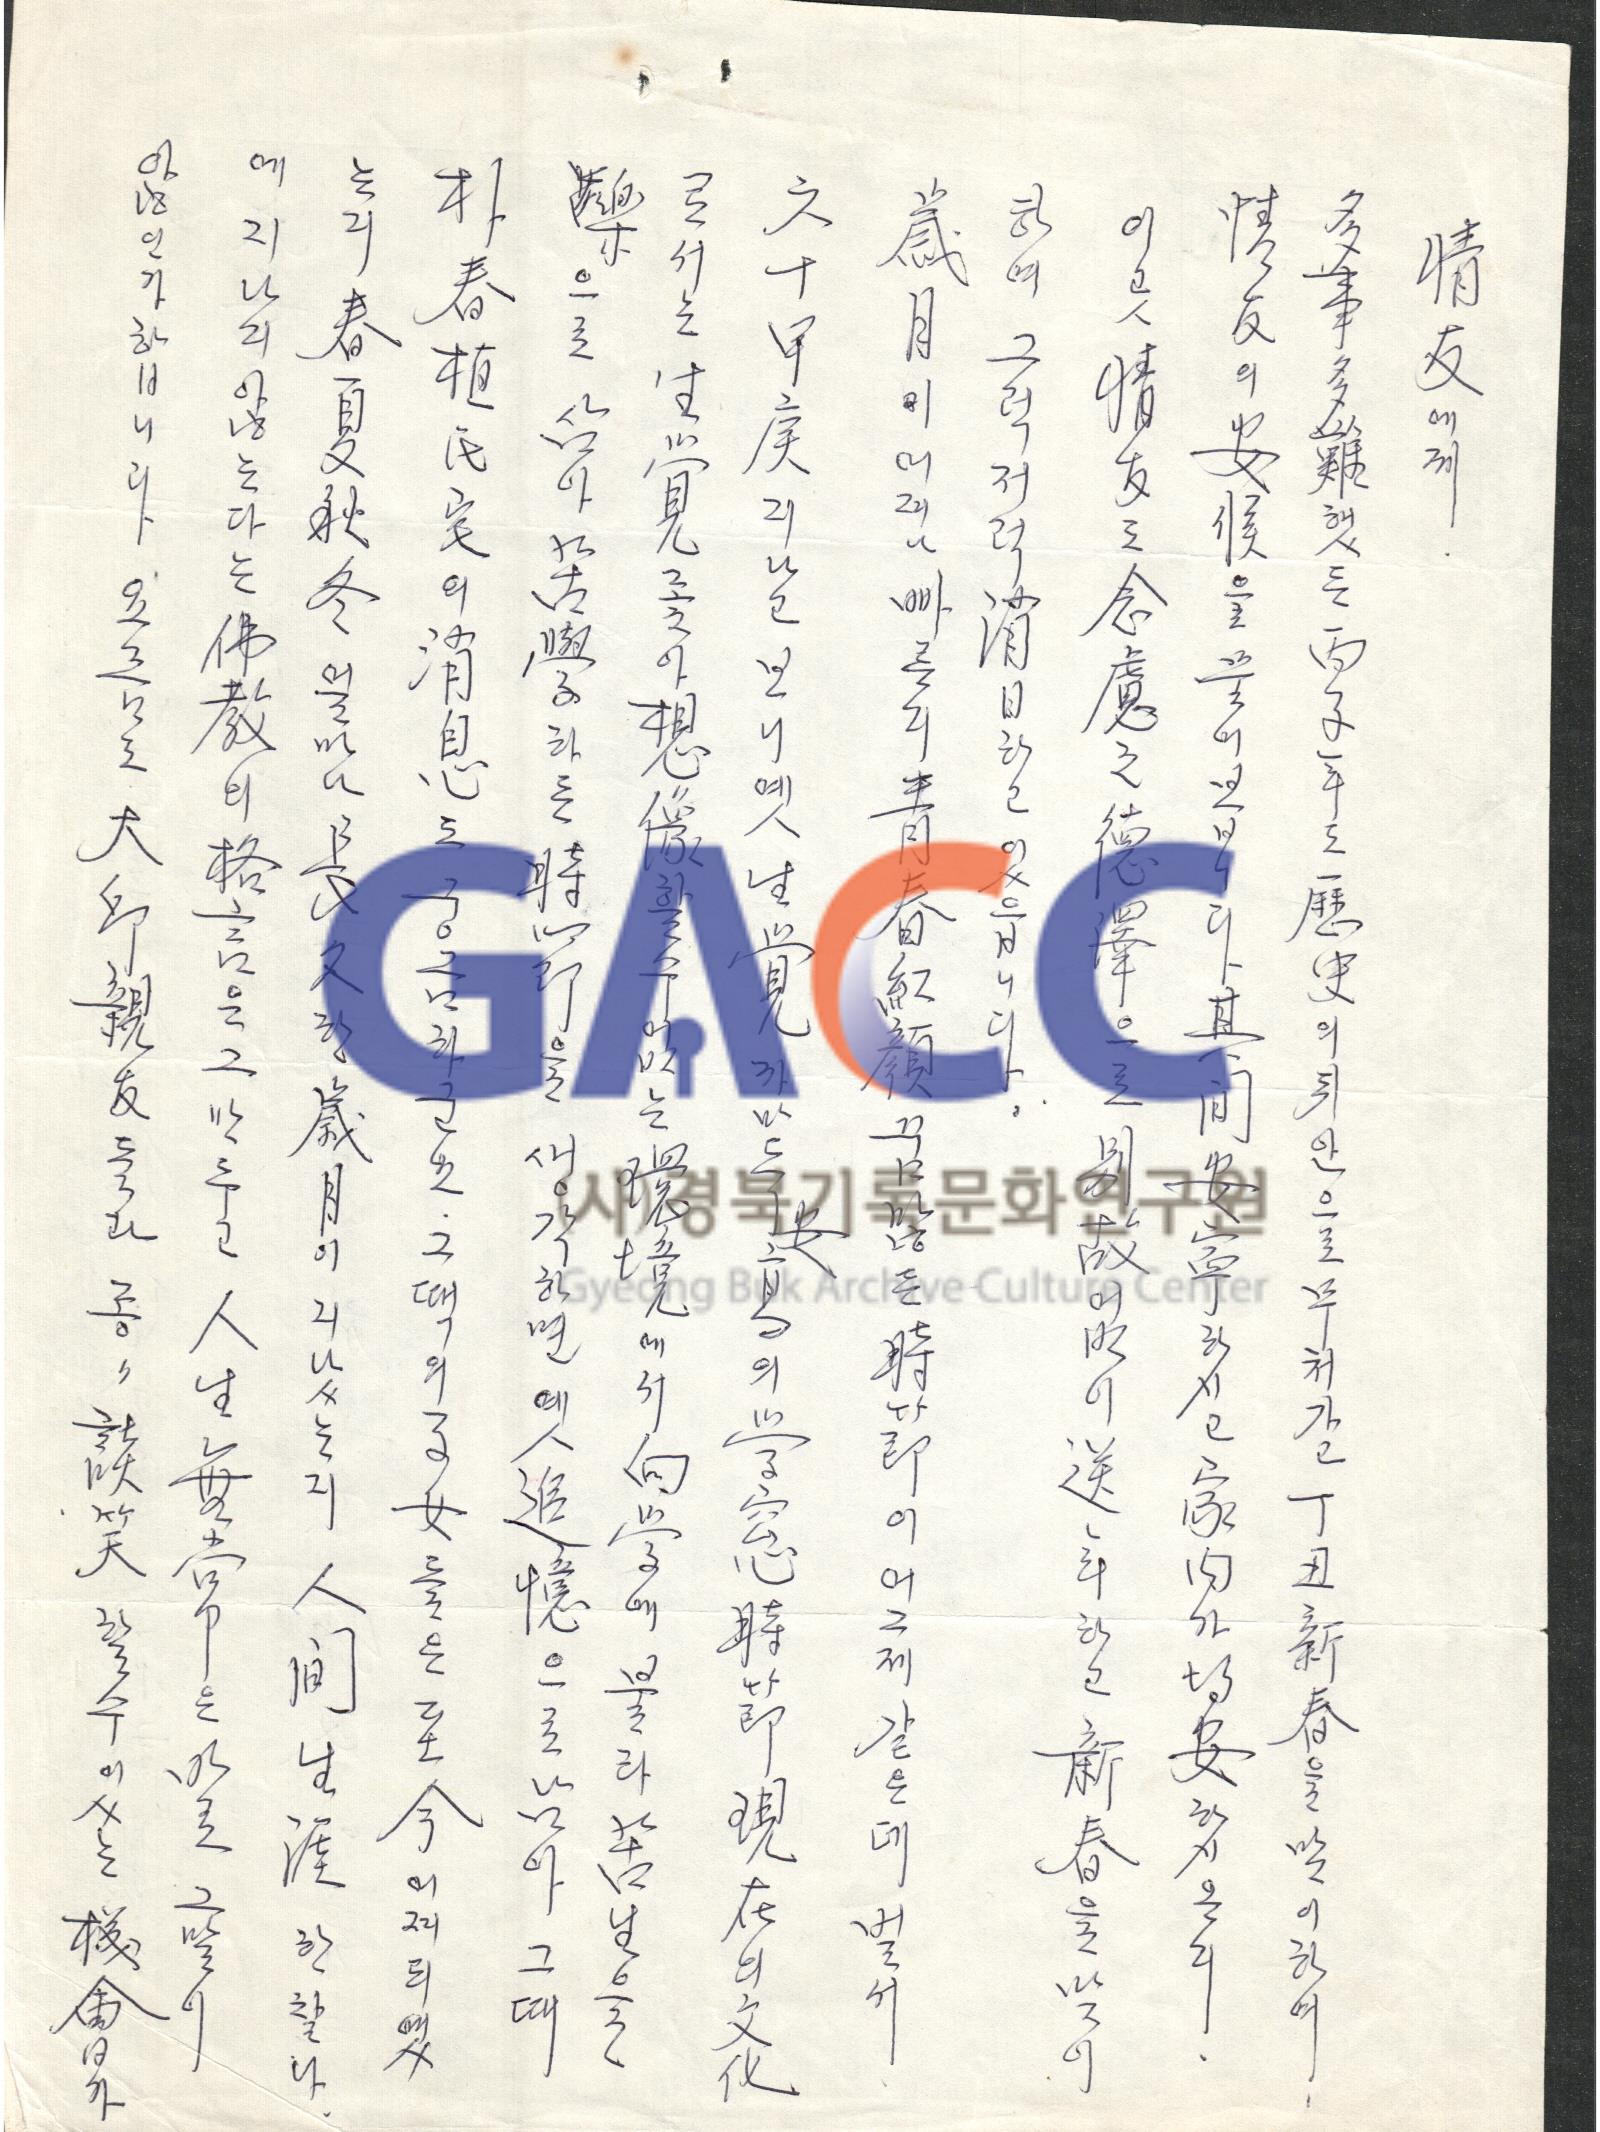 情友에게.
多事多難했든 丙子年도 歷史의 뒤안으로 무처갇고 丁丑新春을 맞이하여.
情友의 安候을 물어보봅니다 其間 安寧하시고 家內가 均安하시온지.
이곳 情友도 念慮之德澤으로 別故 어없이 送年하고 新春을 맞이
하여 그럭저럭 消日하고 있읍니다.
歲月이 어찌나 빠른지 靑春紅顔 꿈많든 時節이 어그제 같은데 벌서
六十甲 候 지난 보니 옛 生覺 까마득 安 의 学窓時節 現在의 文化
로서는 生覺좇아 想像할수 없는 環境에서 向学에 불타 苦生을
樂으로 삼아 苦學하든 時節을 생각하면 옛 追憶으로 남아 그때
朴春植氏 宅의 消息도 궁금하군요. 그댁의 子女들은 또 今 어찌되였
는지 春夏秋冬 얼마나 長久한 歲月이 지났는지 人間生涯 한찰나.
에 지나지 않는다는 佛敎의 格言은 그만두고 人生無常 은 바로 그말이
않인가 합니다 요즈음도 大邱 親友들과 종〃 談笑 할수있는 機會가
GACC
사)경북기록문화연구원
Gyeong Buk Archive Culture Center